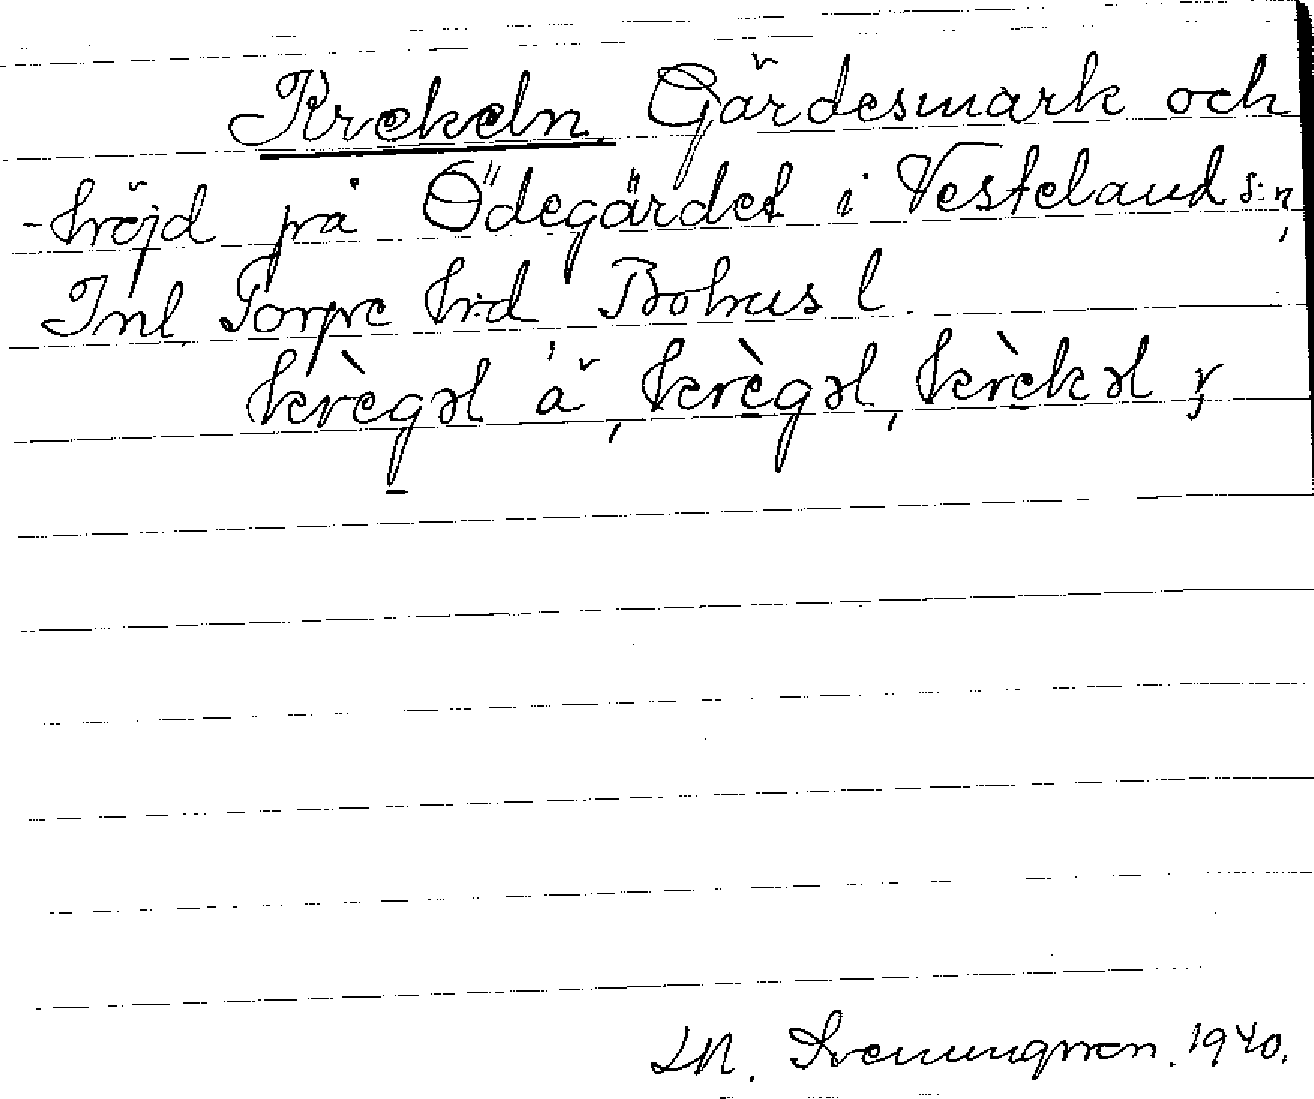 Krekeln. Gärdesmark och
-höjd på Ödegärdet i Vesteland s:n,
Inl. Torpe hd Bohus l.
krègəl ǻ, krègəl, krèkəl
M. Svenungsson. 1940.